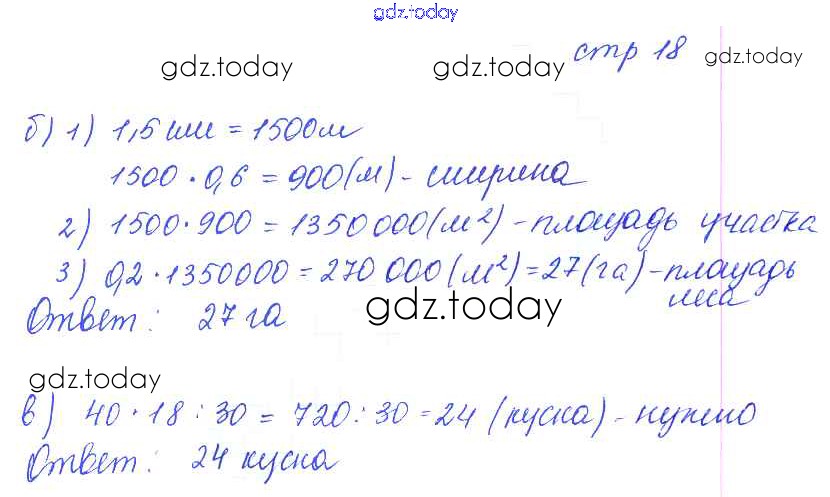 gdz.today
стр 18
gdz.today gdz.today gdz.today
б) 1) 1,5 км = 1500 м
1500 · 0,6 = 900 (м) - ширина
2) 1500 · 900 = 1350000 (м²) - площадь участка
3) 0,2 · 1350000 = 270 000 (м²) = 27 (га) - площадь
леса
Ответ: 27 га
gdz.today
gdz.today
в) 40 · 18 : 30 = 720 : 30 = 24 (куска) - нужно
Ответ: 24 куска